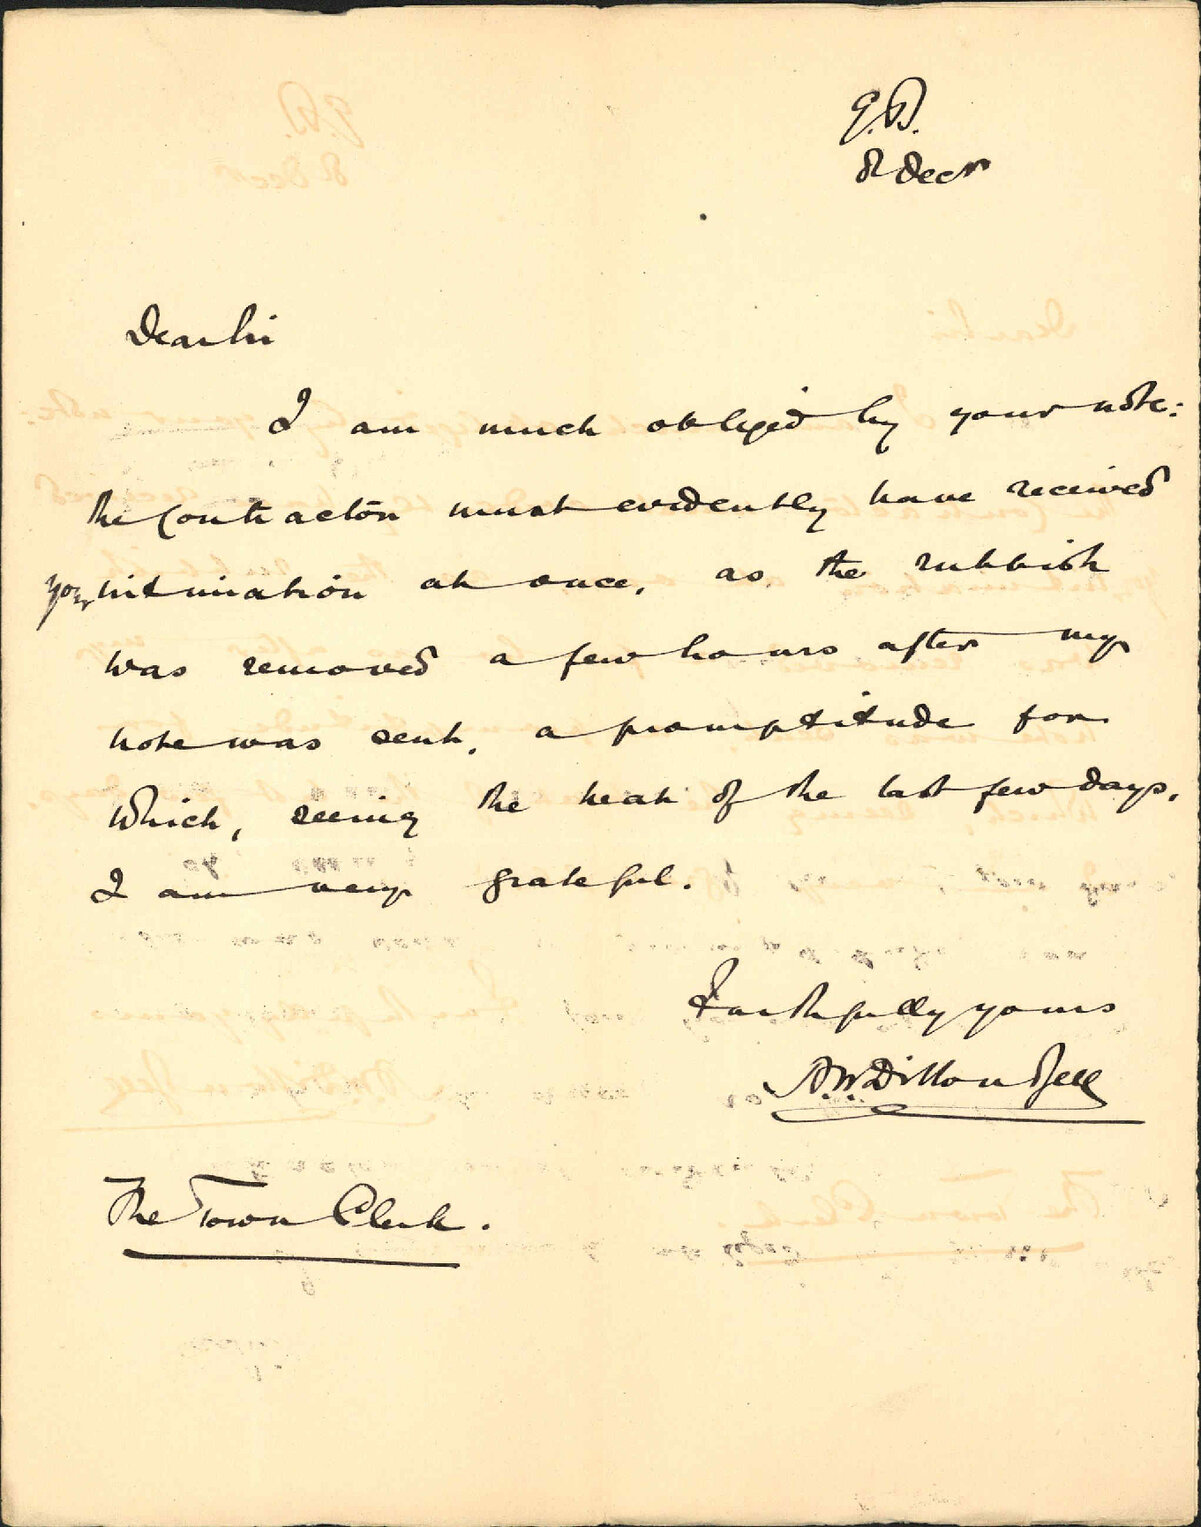 G.B.
8 Decr
Dear Sir
I am much obliged by your note:
the Contractor must evidently have received
your intimation at once, as the rubbish
was removed a few hours after my
note was sent, a promptitude for
which, seeing the heat of the last few days,
I am very grateful.
Faithfully yours
A. W. Dillon Bell
The Town Clerk.